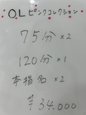 OLピンクコレクション
75分×2
120分×1
本指名×2
¥34,000